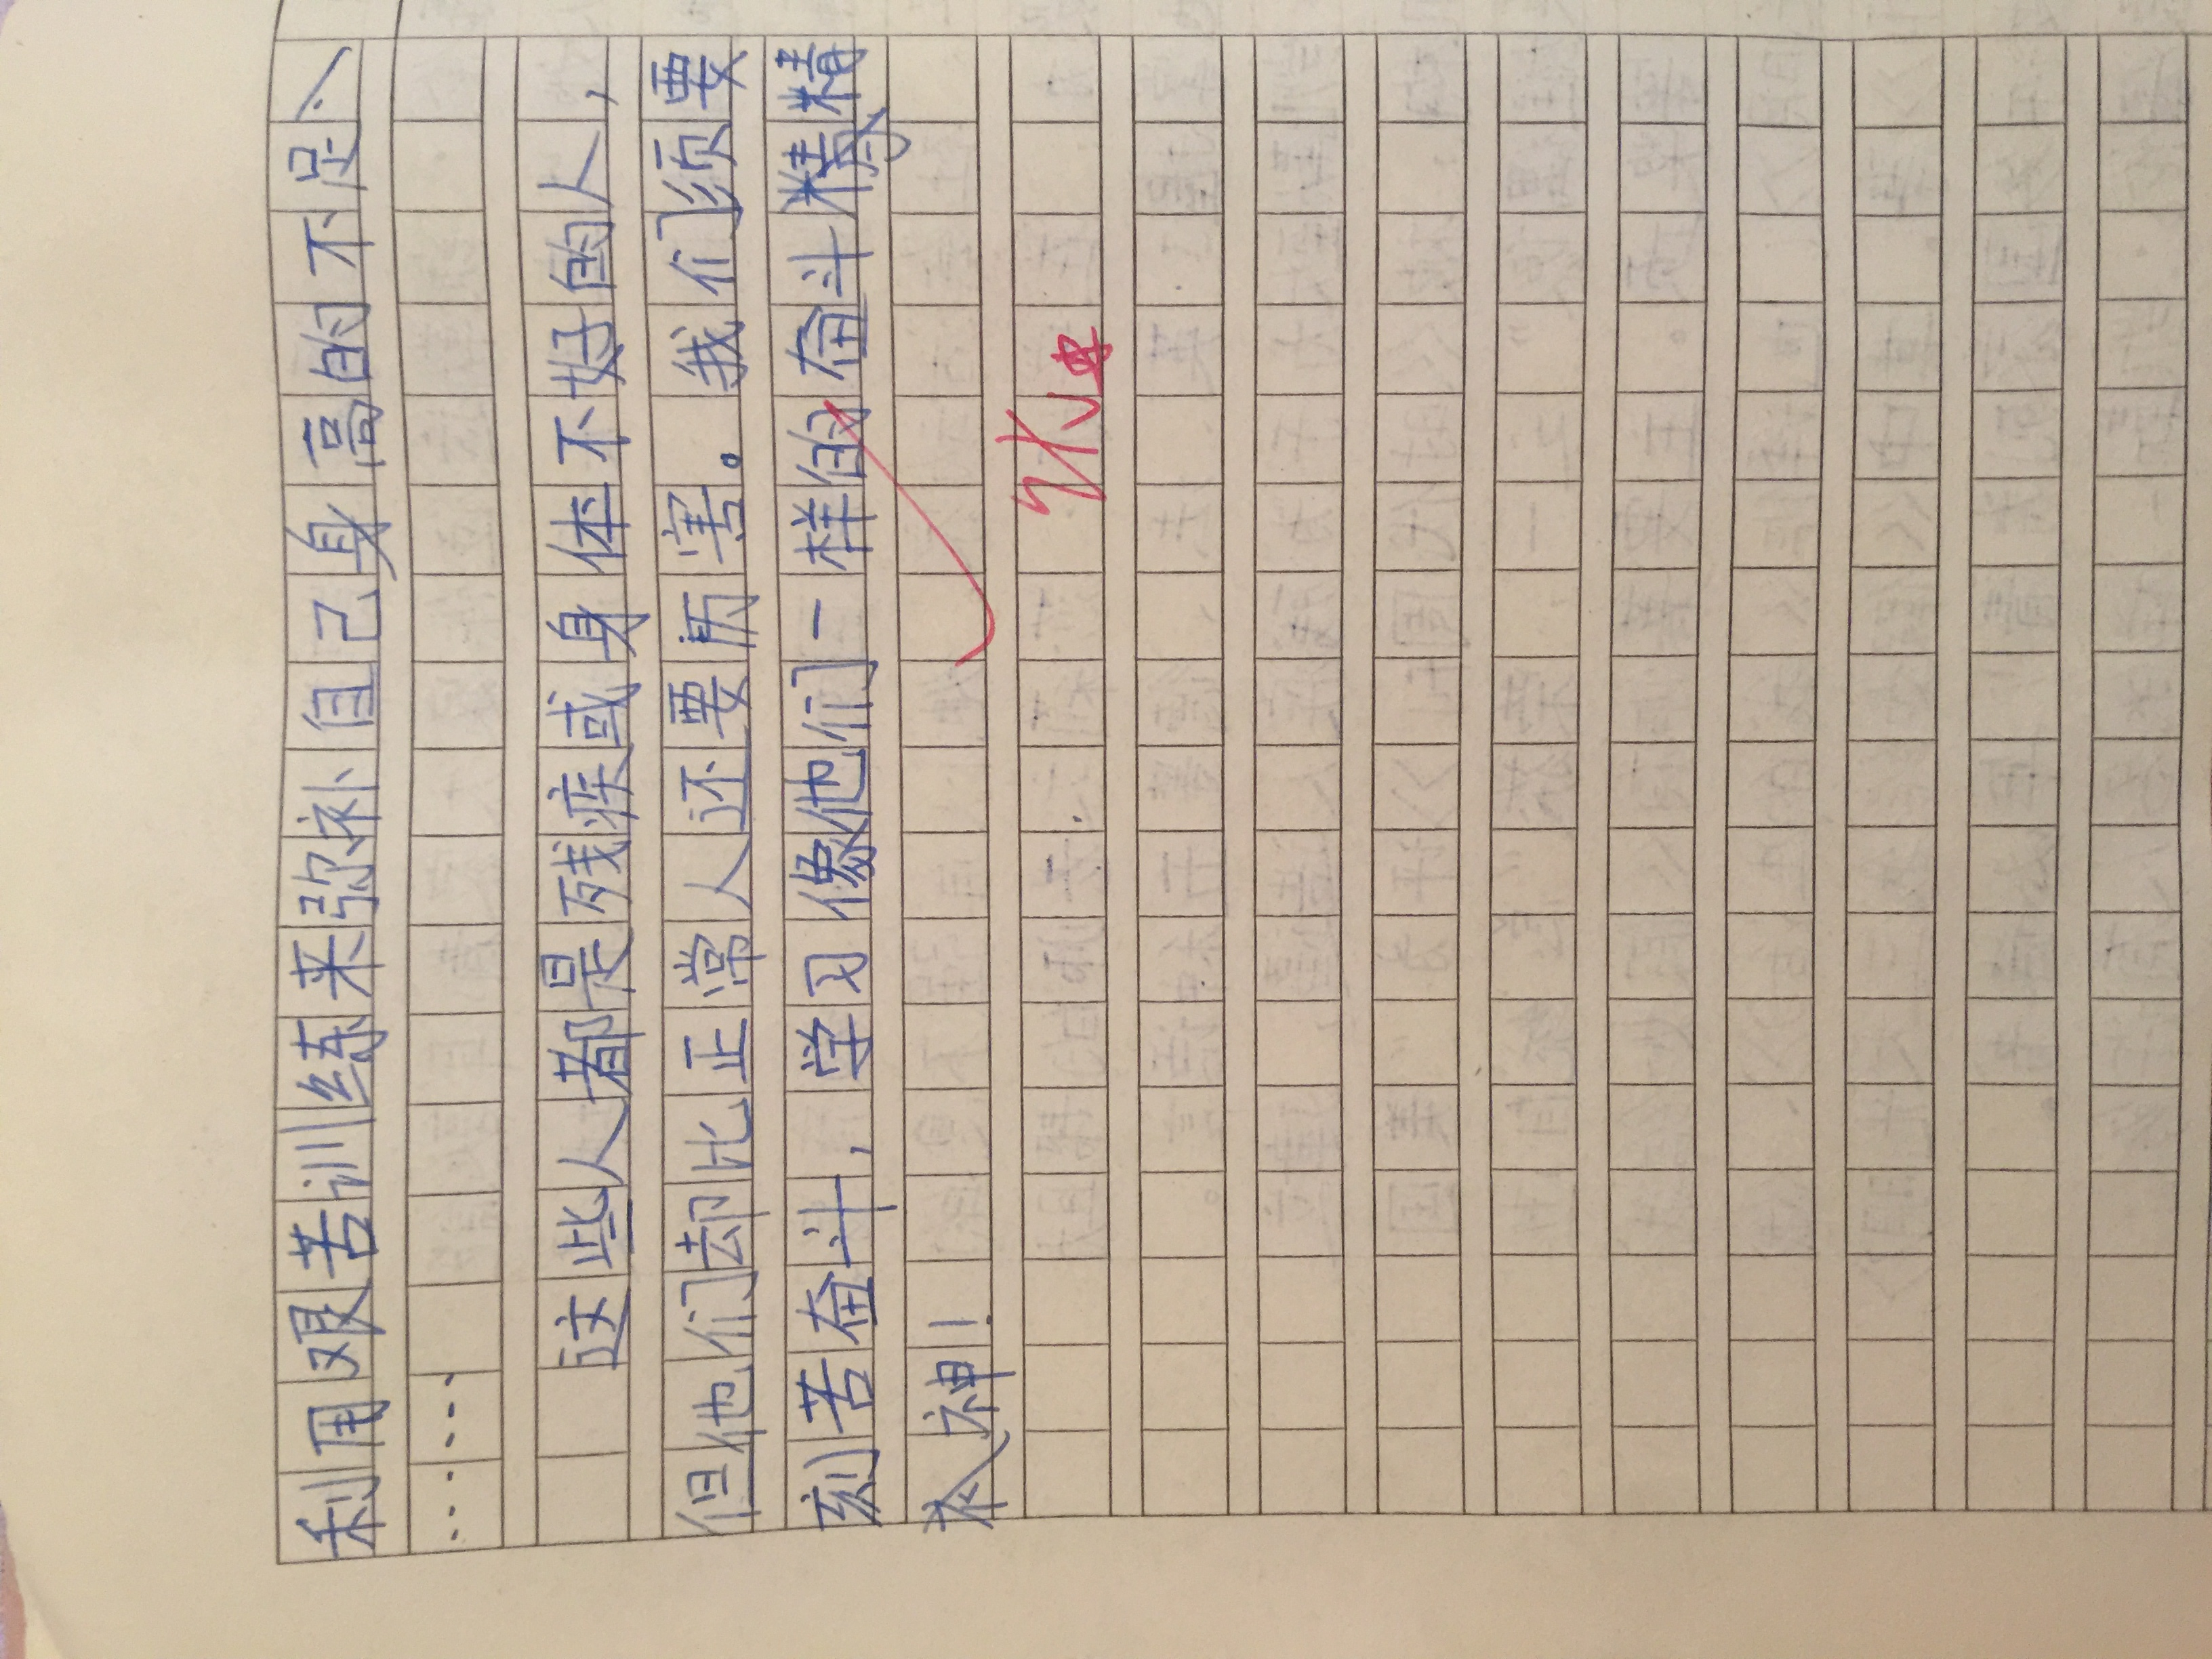 利用艰苦训练来弥补自己身高的不足
……
这些人都是残疾或身体不好的人，
但他们却比正常人还要厉害。我们须要
刻苦奋斗，学习像他们一样的奋斗精
神！